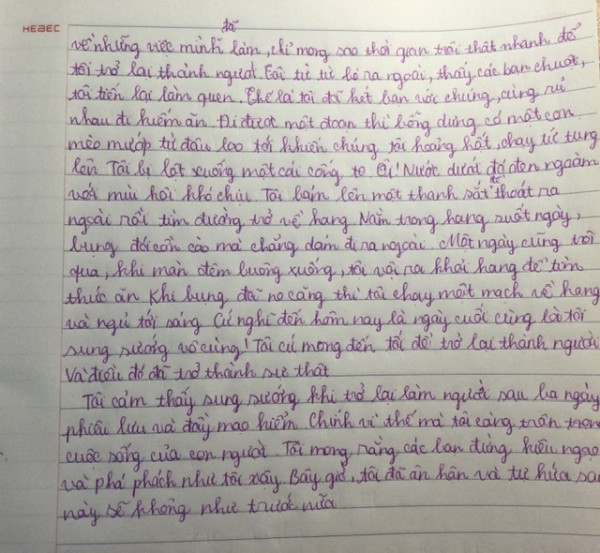 HEBEC
đã
về những việc mình làm, chỉ mong sao thời gian trôi thật nhanh để
tôi trở lại thành người. Tôi từ từ bò ra ngoài, thấy các bạn chuột,
tôi tiến lại làm quen. Thế là tôi đã kết bạn với chúng, cùng rủ
nhau đi kiếm ăn. Đi được một đoạn thì bỗng dưng có một con
mèo mướp từ đâu lao tới khiến chúng tôi hoảng hốt, chạy tứ tung
lên Tôi bị lọt xuống một cái cống to Ôi! Nước dưới đó đen ngòm
với mùi hôi khó chịu. Tôi bám lên một thanh sắt để thoát ra
ngoài rồi tìm đường trở về hang Nằm trong hang suốt ngày,
bụng đói cồn cào mà chẳng dám đi ra ngoài. Một ngày cũng trôi
qua, khi màn đêm buông xuống, tôi vội ra khỏi hang để tìm
thức ăn Khi bụng đã no căng thì tôi chạy một mạch về hang
và ngủ tới sáng Cứ nghĩ đến hôm nay là ngày cuối cùng là tôi
sung sướng vô cùng! Tôi cứ mong đến tối để trở lại thành người
Và điều đó đã trở thành sự thật
Tôi cảm thấy sung sướng khi trở lại làm người sau ba ngày
phiêu lưu và đầy mạo hiểm Chính vì thế mà tôi càng trân trọng
cuộc sống của con người. Tôi mong rằng các bạn đừng kiêu ngạo
và phá phách như tôi vậy Bây giờ, tôi đã ân hận và tự hứa sau
này sẽ không như trước nữa